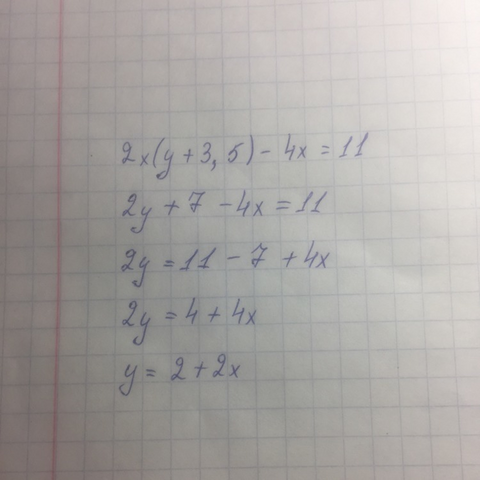 2x(y + 3,5) - 4x = 11
2y + 7 - 4x = 11
2y = 11 - 7 + 4x
2y = 4 + 4x
y = 2 + 2x